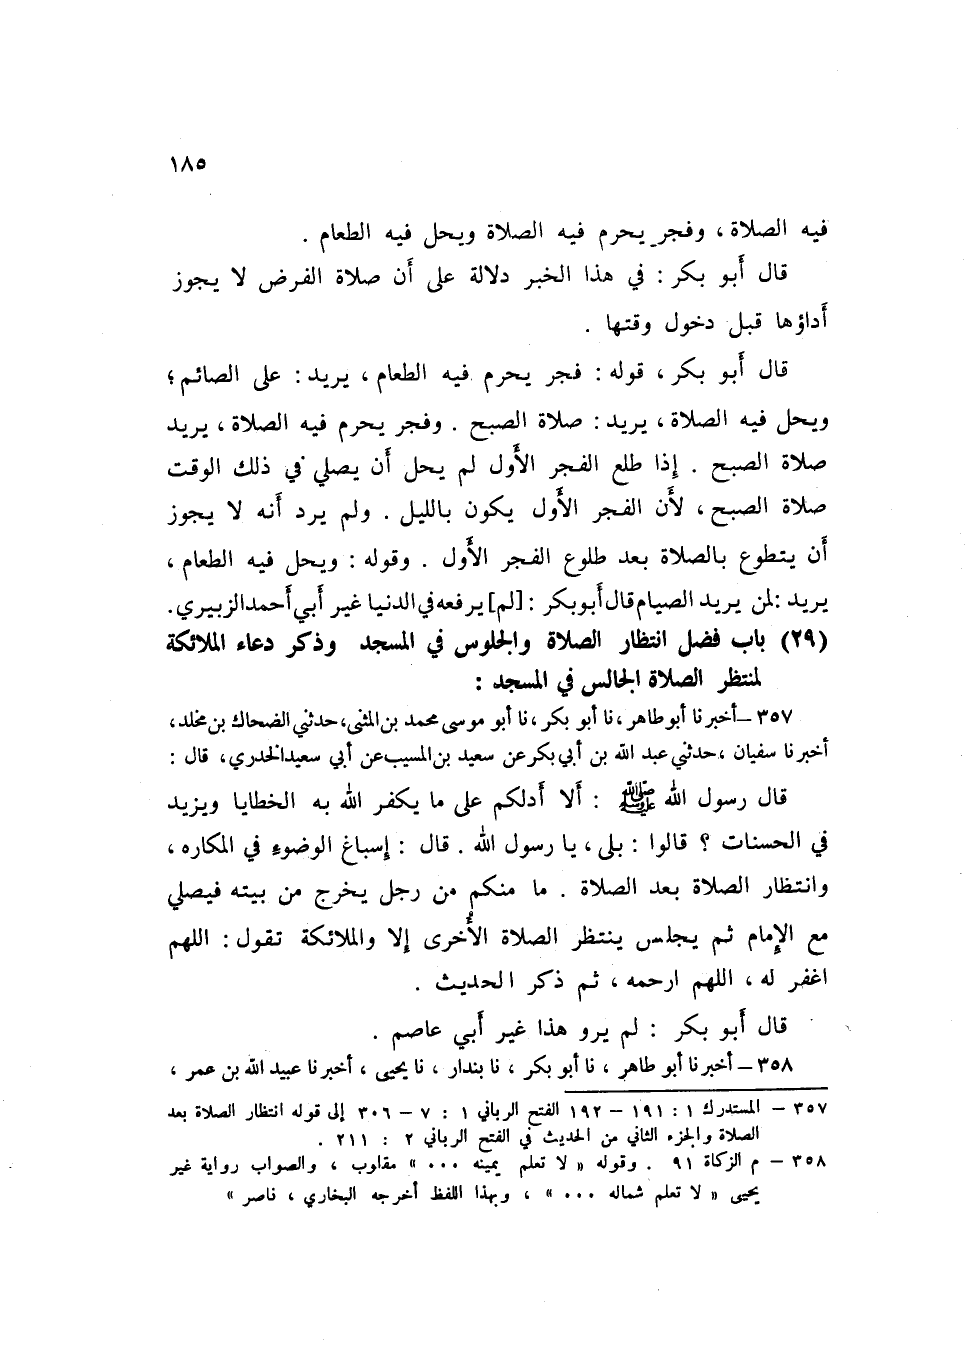 ١٨٥
فيه الصلاة ، وفجر يحرم فيه الصلاة ويحل فيه الطعام .
قال أبو بكر : في هذا الخبر دلالة على أن صلاة الفرض لا يجوز
أداؤها قبل دخول وقتها .
قال أبو بكر ، قوله : فجر يحرم فيه الطعام ، يريد : على الصائم ؛
ويحل فيه الصلاة ، يريد : صلاة الصبح . وفجر يحرم فيه الصلاة ، يريد
صلاة الصبح . إذا طلع الفجر الأول لم يحل أن يصلي في ذلك الوقت
صلاة الصبح ، لأن الفجر الأول يكون بالليل . ولم يرد أنه لا يجوز
أن يتطوع بالصلاة بعد طلوع الفجر الأول . وقوله : ويحل فيه الطعام ،
يريد : لمن يريد الصيام قال أبو بكر : [لم] يرفعه في الدنيا غير أبي أحمد الزبيري .
(٢٩) باب فضل انتظار الصلاة والجلوس في المسجد وذكر دعاء الملائكة
لمنتظر الصلاة الجالس في المسجد :
٣٥٧ – أخبرنا أبو طاهر ، نا أبو بكر ، نا أبو موسى محمد بن المثنى ، حدثني الضحاك بن مخلد ،
أخبرنا سفيان ، حدثني عبد الله بن أبي بكر عن سعيد بن المسيب عن أبي سعيد الخدري ، قال :
قال رسول الله ﷺ : ألا أدلكم على ما يكفر الله به الخطايا ويزيد
في الحسنات ؟ قالوا : بلى ، يا رسول الله . قال : إسباغ الوضوء في المكاره ،
وانتظار الصلاة بعد الصلاة . ما منكم من رجل يخرج من بيته فيصلي
مع الإمام ثم يجلس ينتظر الصلاة الأُخرى إلا والملائكة تقول : اللهم
اغفر له ، اللهم ارحمه ، ثم ذكر الحديث .
قال أبو بكر : لم يرو هذا غير أبي عاصم .
٣٥٨ – أخبرنا أبو طاهر ، نا أبو بكر ، نا بندار ، نا يحيى ، أخبرنا عبيد الله بن عمر ،
٣٥٧ – المستدرك ١ : ١٩١ – ١٩٢ الفتح الرباني ١ : ٧ – ٣٠٦ إلى قوله انتظار الصلاة بعد
الصلاة والجزء الثاني من الحديث في الفتح الرباني ٢ : ٢١١ .
٣٥٨ – م الزكاة ٩١ . وقوله « لا تعلم يمينه ٠٠٠ » مقلوب ، والصواب رواية غير
يحيى « لا تعلم شماله ٠٠٠ » ، وبهذا اللفظ أخرجه البخاري ، ناصر »